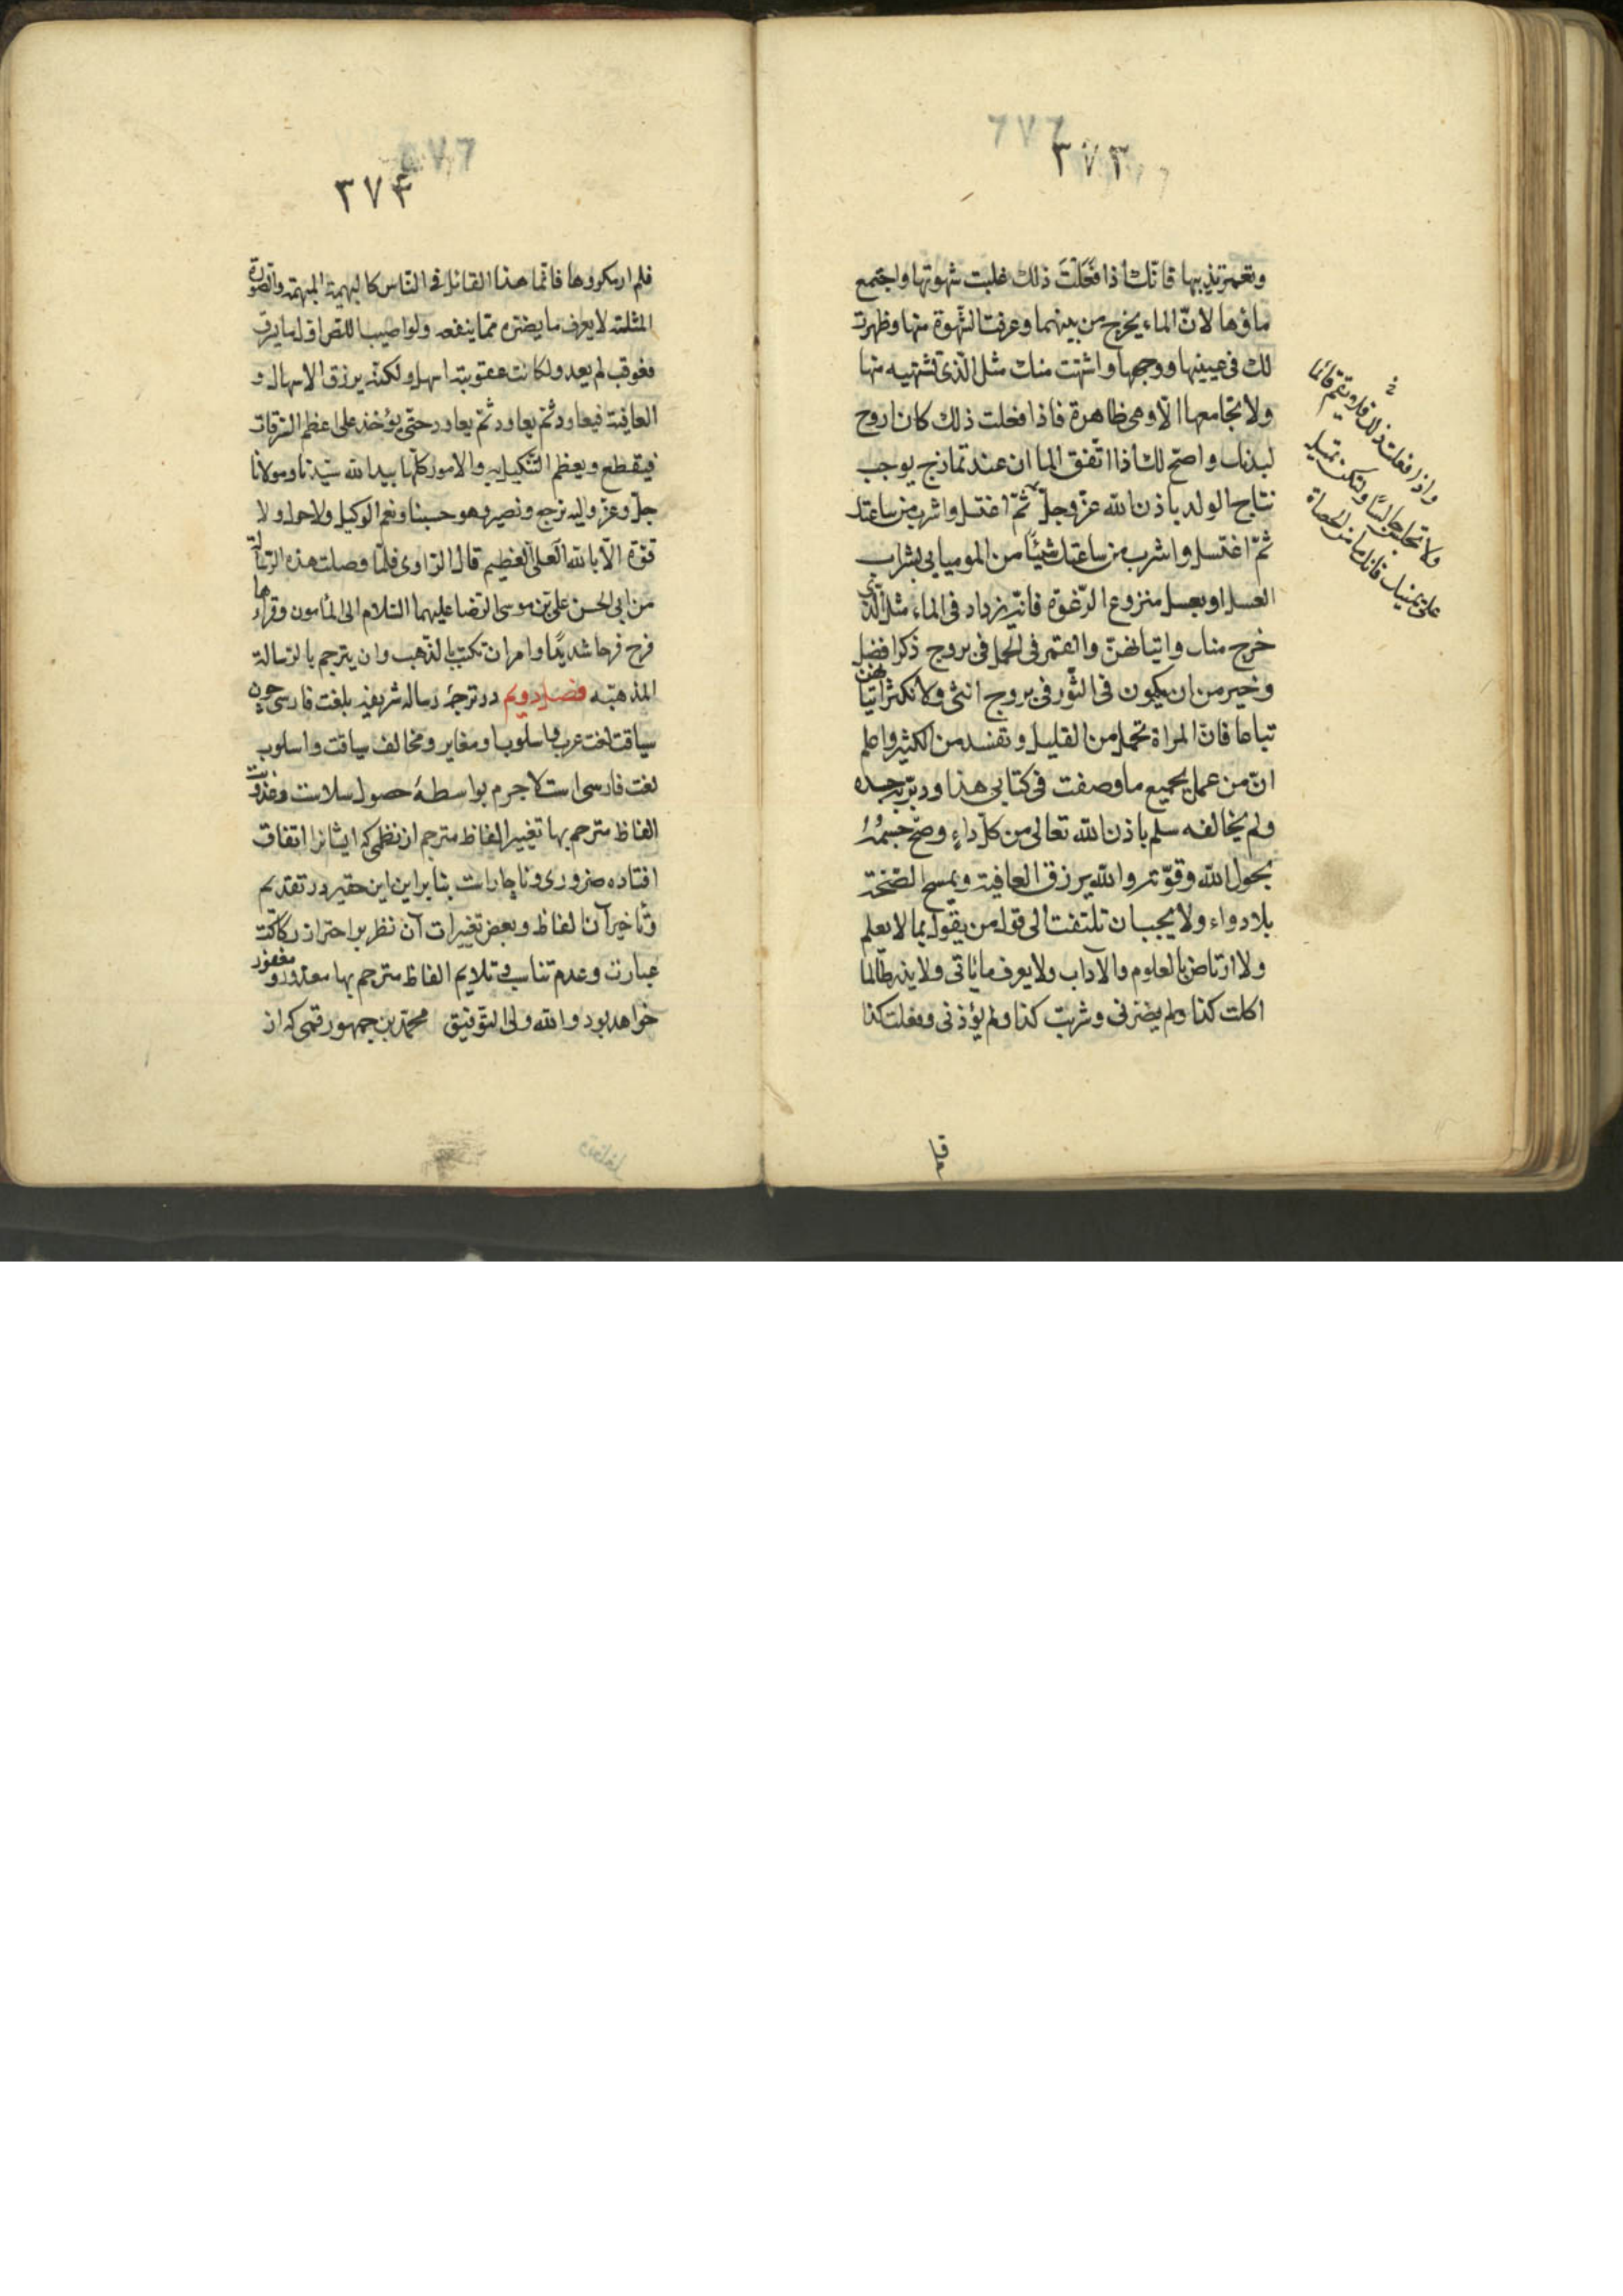 ٣٧٣
وتغمز ثدييها فانّك اذا فَعَلْتَ ذلك غلبت شهوتها واجتمع
ماؤها لانّ الماء يخرج من بينهما وعرفت الشهوة منها وظهرت
لك فى عينيها ووجهها واشتهت منك مثل الّذى تشتهيه منها
ولا تجامعها الّا وهى ظاهرة فاذا فعلت ذلك كان اروح
لبدنك واصحّ لك اذا اتّفق الماان عند تمازج يوجب
نتاج الولد باذن الله عزّ وجلّ ثمّ اغتسل واشرب من ساعتك
ثمّ اغتسل واشرب من ساعتك شيئًا من الموميايى بشراب
العسل او بعسل منزوع الرّغوة فانّه يزداد فى الماء مثل الّذى
خرج منك واتيانهنّ والقمر فى الحمل فى بروج ذكر افضل
وخير من ان يكون فى الثّور فى بروج انثى ولا تكثر اتيانهنّ
تباعا فانّ المراة تحمل من القليل وتفسد من الكثير واعلم
انّ من عمل بجميع ما وصفت فى كتابى هذا ودبّر به جسده
ولم يخالفه سلم باذن الله تعالى من كلّ داءٍ وصحّ جسمُهُ
بحول الله وقوّته والله يرزق العافية ويمنح الصّحّة
بلا دواء ولا يجب ان تلتفت الى قول من يقول بما لا يعلم
ولا ارتاض بالعلوم والآداب ولا يعرف ما ياتى ولا يذر طالما
اكلت كذا ولم يضرّنى وشربت كذا ولم يؤذنى وفعلت كذا
واذا فعلت ذلك فلا تقم قائما
ولا تجلس جالسًا ولكن تميل
على يمينك فانك تأمن الحصاة
٣٧٤
فلم ار مكروها فانّما هذا القائل فى النّاس كالبهيمة المبهمة والصّورة
المثلة لا يعرف ما يضرّه ممّا ينفعه ولو اصيب اللّصّ اوّل ما يسرق
فعوقب لم يعد ولكانت عقوبته اسهل ولكنّه يرزق الامهال و
العافية فيعاود ثمّ يعاود ثمّ يعاود حتّى يؤخذ على اعظم السّرقات
فيقطع ويعظم التّنكيل به والامور كلّها بيد الله سيّدنا ومولانا
جلّ وعزّ واليه نرجع ونصير وهو حسبنا ونعم الوكيل ولا حول ولا
قوّة الّا بالله العلىّ العظيم قال الرّاوى فلمّا وصلت هذه الرّسالة
من ابى الحسن علىّ بن موسى الرّضا عليهما السّلام الى المأمون وقرأها
فرح فرحا شديدًا وامر ان تكتب بالذّهب وان يترجم بالرّسالة
المذهّبه فصل دويم در ترجمهٔ رساله شريفه بلغت فارسى چون
سياقت لغت عرب واسلوب او مغاير ومخالف سياقت واسلوب
لغت فارسى است لاجرم بواسطهٔ حصول سلاست وعذوبت
الفاظ مترجم بها تغيير الفاظ مترجم از نظمى كه ايشانرا اتفاق
افتاده ضرورى وناچار است بنا براين اين حقير در تقديم
وتأخير آن الفاظ وبعض تغييرات آن نظر بر احتراز ركاكت
عبارت وعدم تناسب وتلايم الفاظ مترجم بها معذور ومغفور
خواهد بود والله ولى التّوفيق محمّد بن جمهور قمى كه از